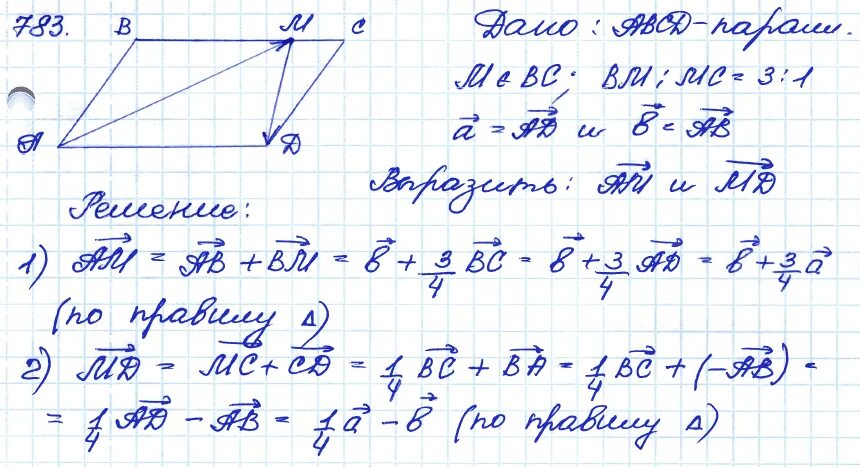 783.
B M C
A D
Дано: ABCD-парал.
M ∈ BC; BM:MC = 3:1
a⃗ = AD⃗ и b⃗ = AB⃗
Выразить: AM⃗ и MD⃗
Решение:
1) AM⃗ = AB⃗ + BM⃗ = b⃗ + 3/4 BC⃗ = b⃗ + 3/4 AD⃗ = b⃗ + 3/4 a⃗
(по правилу Δ)
2) MD⃗ = MC⃗ + CD⃗ = 1/4 BC⃗ + BA⃗ = 1/4 BC⃗ + (-AB⃗) =
= 1/4 AD⃗ - AB⃗ = 1/4 a⃗ - b⃗ (по правилу Δ)